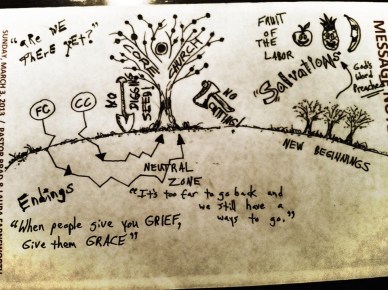 "aRe WE
THeRe YeT?"
FRUIT
OF THE
LABOR
"Salvations"
God's
Word
Preached
CHURCH
NO
DIGGING
SEED!
NO
CUTTING!
FC
CC
NEUTRAL
ZONE
NEW BEGINNINGS
Endings
"It's too far to go back and
we still have a
ways to go."
"When people give you GRIEF,
Give them GRACE"
SUNDAY, MARCH 3, 2013
PASTOR BRAD
MESSAGE